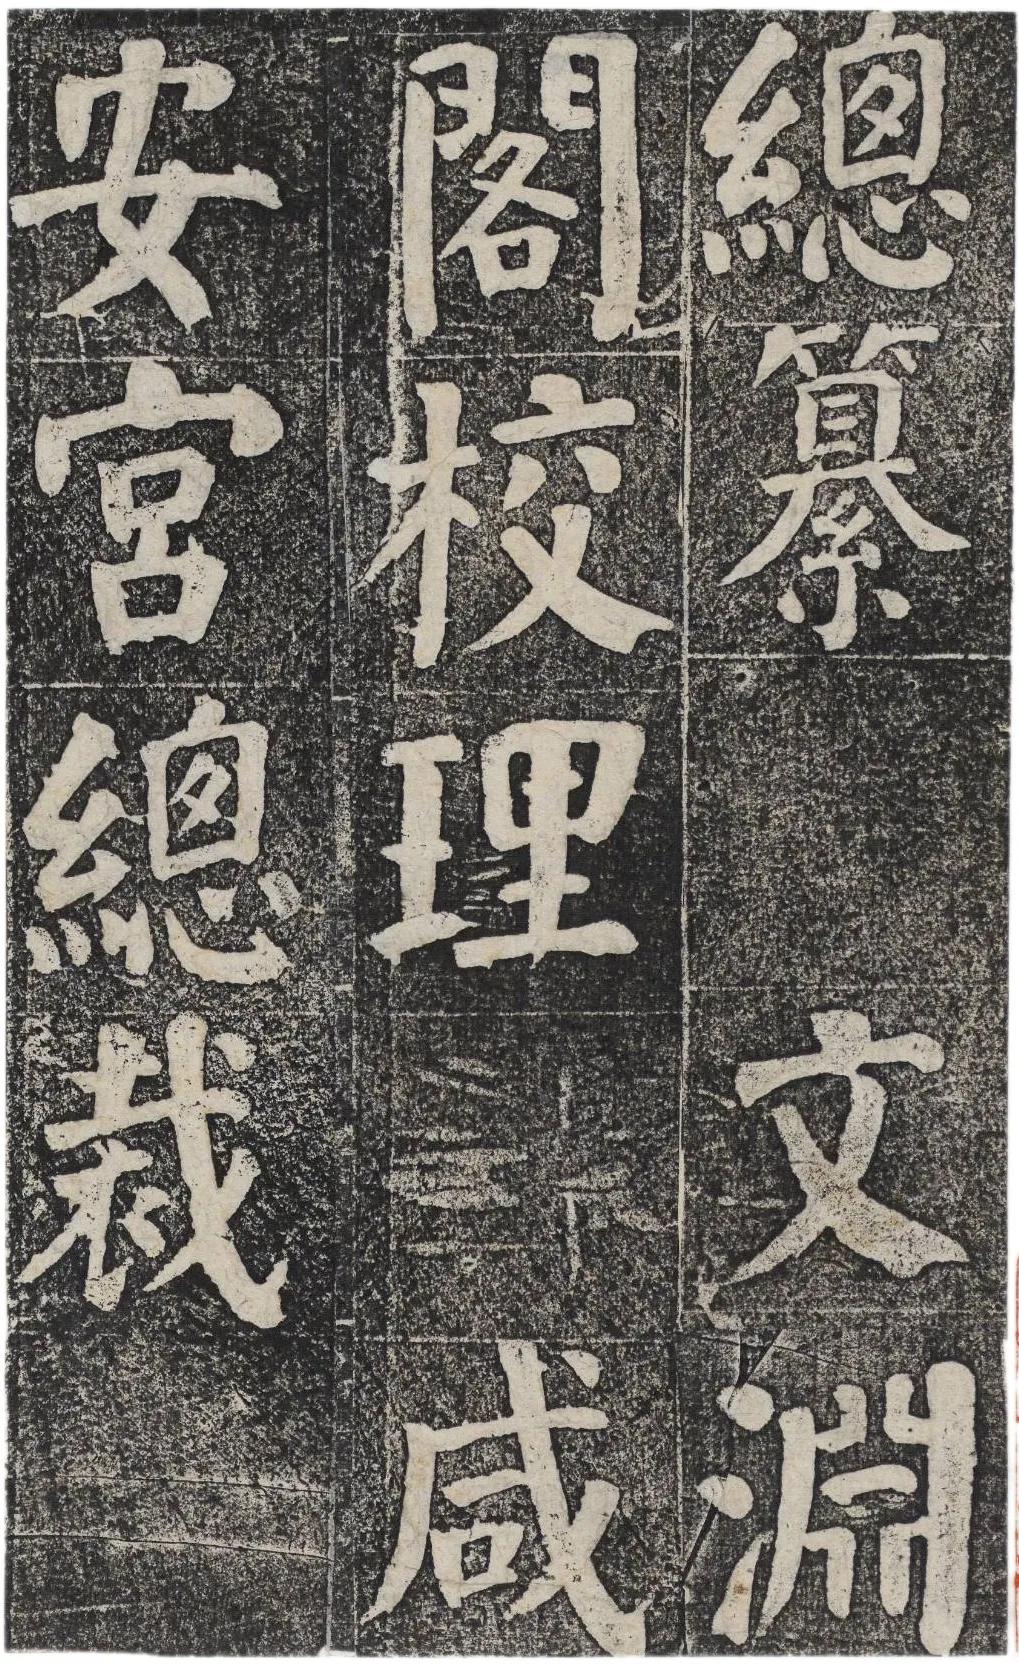 總纂 文淵
閣校理 咸
安宮總裁